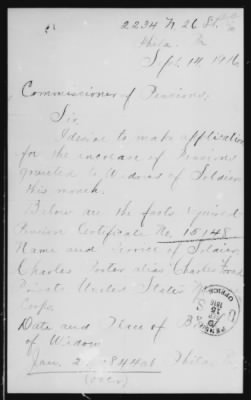 2234 N. 26 St.
Phila. Pa
Sept. 14, 1916
Commissioner of Pensions,
Sir,
I desire to make application
for the increase of Pensions
granted to Widows of Soldiers
this month.
Below are the facts required
Pension Certificate No. 15148
Name and Service of Soldier
Charles Porter alias Charles
Private United States
Corps.
Date and Place of
of Widow
Jan. 2 1844 at Phila.
(over)
PENSION OFFICE
1916